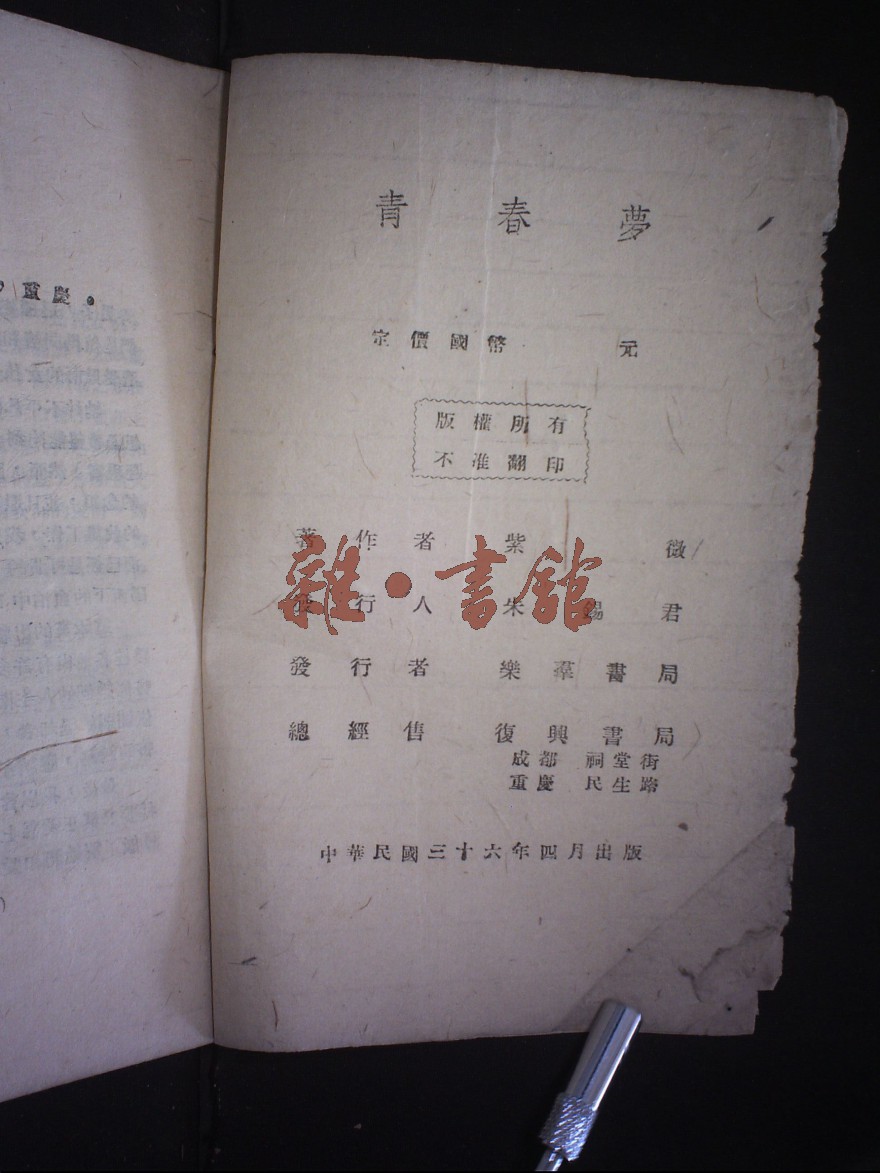 重慶。
青春夢
定價國幣 元
版權所有
不准翻印
著作者 紫微
發行人 朱錫君
雜·書館
發行者 樂羣書局
總經售 復興書局
成都 祠堂街
重慶 民生路
中華民國三十六年四月出版